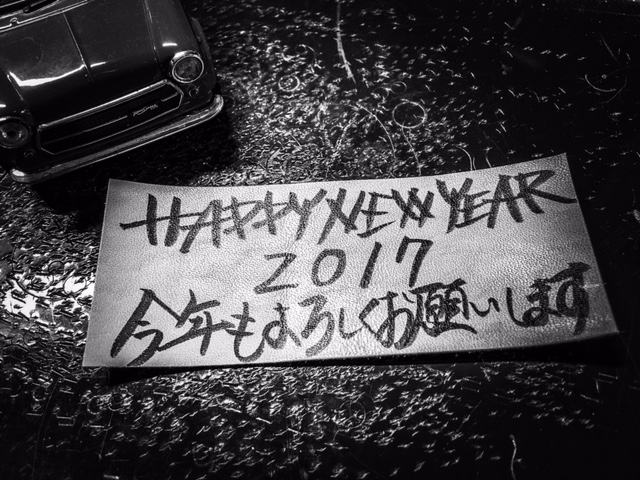 HAPPY NEW YEAR
2017
今年もよろしくお願いします